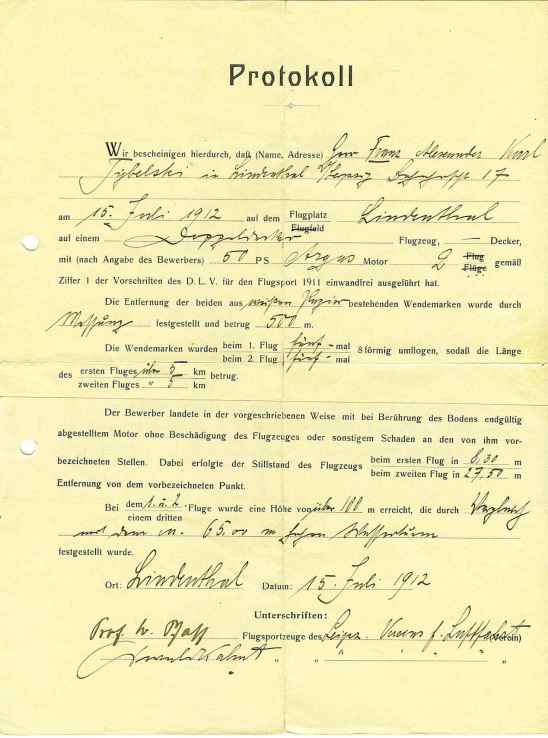 Protokoll
Wir bescheinigen hierdurch, daß (Name, Adresse) Herr Franz Alexander Karl
Tybelski in Lindenthal 17
am 15. Juli 1912 auf dem Flugplatz Lindenthal
Flugfeld
auf einem Doppeldecker Flugzeug, — Decker,
mit (nach Angabe des Bewerbers) 50 PS Argus Motor 2 Flug gemäß
Flüge
Ziffer 1 der Vorschriften des D. L. V. für den Flugsport 1911 einwandfrei ausgeführt hat.
Die Entfernung der beiden aus weißem Papier bestehenden Wendemarken wurde durch
Messung festgestellt und betrug 500 m.
Die Wendemarken wurden beim 1. Flug fünf-mal 8förmig umflogen, sodaß die Länge
beim 2. Flug fünf-mal
des ersten Fluges über 5 km betrug.
zweiten Fluges " 5 km
Der Bewerber landete in der vorgeschriebenen Weise mit bei Berührung des Bodens endgültig
abgestelltem Motor ohne Beschädigung des Flugzeuges oder sonstigem Schaden an den von ihm vor-
bezeichneten Stellen. Dabei erfolgte der Stillstand des Flugzeugs beim ersten Flug in 8,30 m
beim zweiten Flug in 27,50 m
Entfernung von dem vorbezeichneten Punkt.
Bei dem 1. u. 2. Fluge wurde eine Höhe von über 100 m erreicht, die durch Vergleich
einem dritten
mit dem 65,00 m hohen Wasserturm
festgestellt wurde.
Ort: Lindenthal Datum: 15. Juli 1912
Unterschriften:
Prof. Flugsportzeuge des Leipz. Vereins f. Luftfahrt (Verein)
" " " "